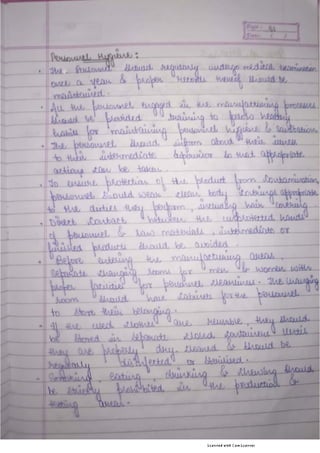 Personnel Hygiene :
• The Personnel should regularly undergo medical examination
once a year & proper records thereof should be
maintained.
• All the personnel engaged in the manufacturing processes
should be provided training to follow healthy
habits for maintaining personnel hygiene & sanitation
• The personnel should inform about their illness
to their intermediate supervisor so that appropriate
actions can be taken.
• To ensure protection of the product from contamination
personnel should wear clean body coverings appropriate
to the duties they perform, including hair covering.
• Direct Contact between the unprotected hands
of personnel & raw materials, intermediate or
finished products should be avoided.
• Before entering the manufacturing areas,
separate changing room for men & women with
proper facilities for personnel cleanliness. The changing
room should have cabinets for the personnel
to store their belonging.
• If the used clothes are reusable, they should
be stored in separate closed containers until
they are properly dry, cleaned & should be
regularly disinfected or sterilised.
• Smoking, eating, drinking & chewing should
be strictly prohibited in the production &
testing areas.
Scanned with CamScanner